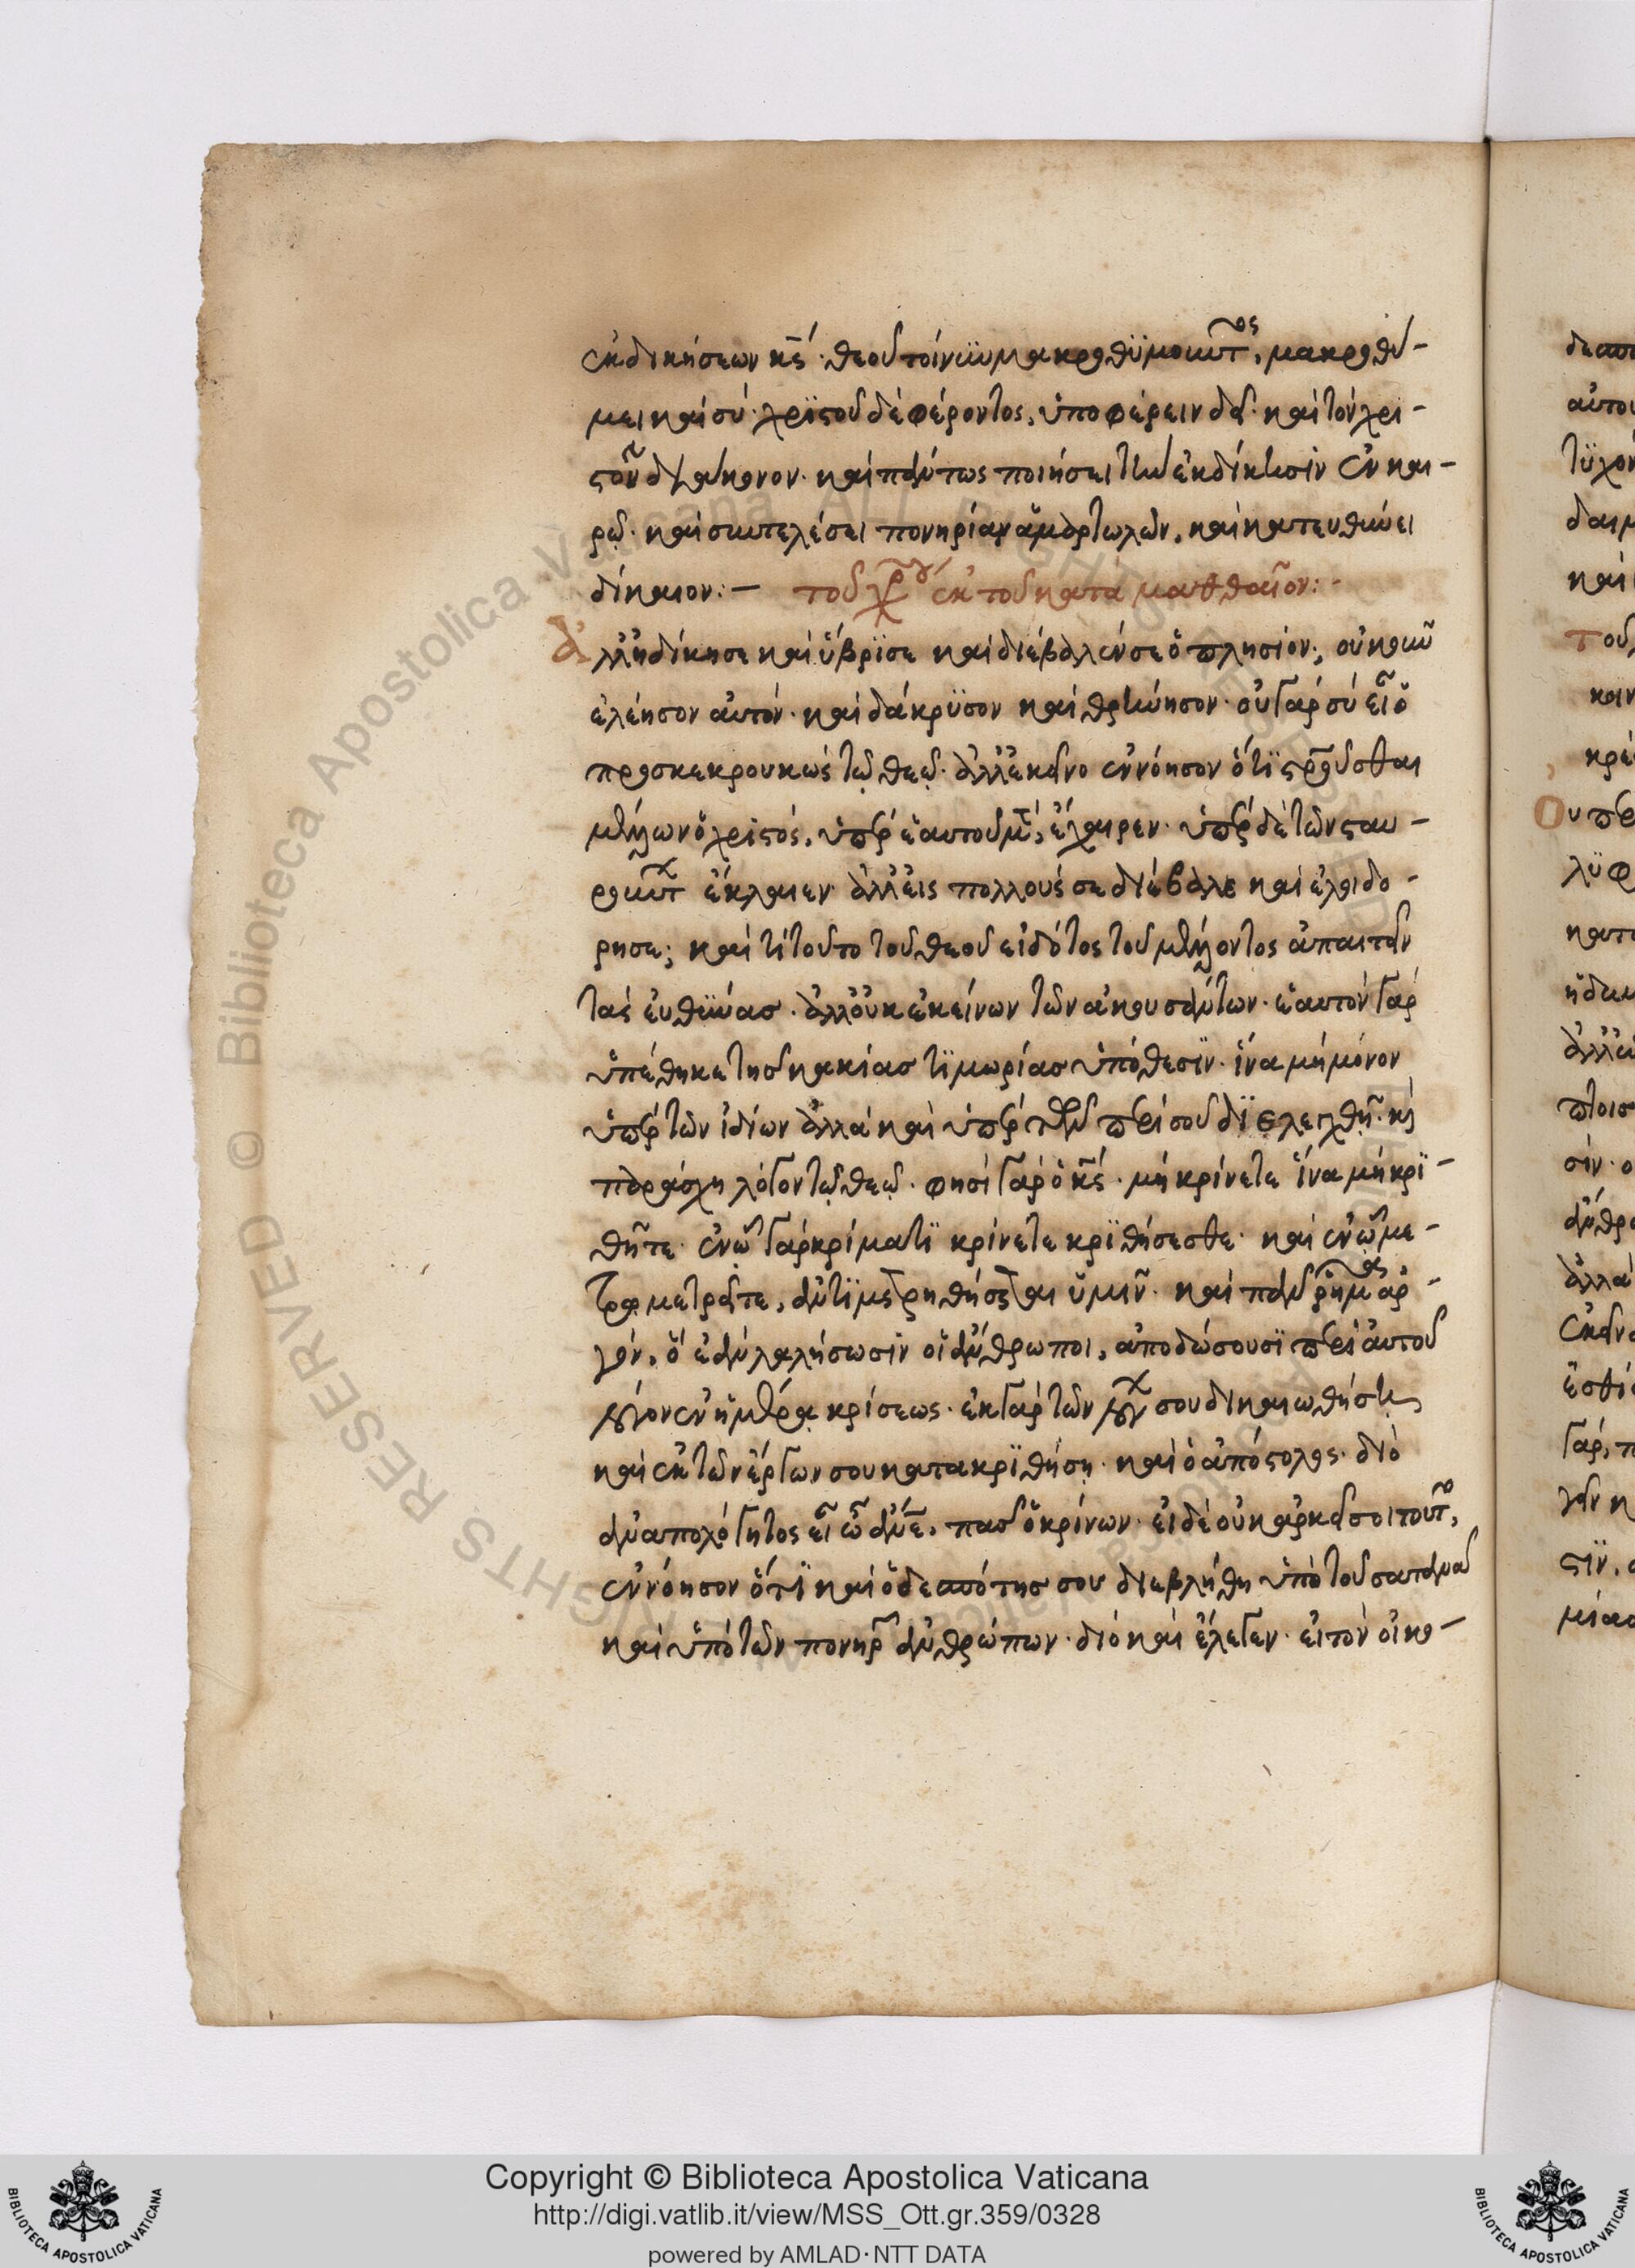 ἐκδικήσεων κς´· θεοῦ τοίνυν μακροθϋμοῦντος, μακροθύ-
μει καὶ σύ· χρϊστοῦ δὲ φέροντος, ὑποφέρειν δεῖ· καὶ τὸν χρι-
στὸν διάκονον· καὶ πάντως ποιήσει τὴν ἐκδίκησϊν ἐν και-
ρῷ· καὶ συντελέσει πονηρίαν ἁμαρτωλῶν, καὶ κατευθύνει
δίκαιον:— τοῦ χρ ἐκ τοῦ κατὰ ματθαῖον:-
Ἀλλ' ἠδίκησε καὶ ὕβρϊσε καὶ διέβαλέν σε ὁ πλησίον; οὐκοῦν
ἐλέησον αὐτόν· καὶ δάκρϋσον καὶ θρήνησον· οὐ γὰρ σὺ εἶ ὁ
προσκεκρουκὼς τῷ θεῷ· ἀλλ' ἐκεῖνο ἐννόησον ὅτϊ στροῦσθαι
μέλλων ὁ χριστός, ὑπὲρ ἑαυτοῦ μὲν, ἔχαιρεν· ὑπὲρ δὲ τῶν σταυ-
ρούντ ἔκλαιεν· ἀλλ' εἰς πολλούς σε διέβαλε καὶ ἐλοιδό-
ρησε; καὶ τί τοῦτο τοῦ θεοῦ εἰδότος τοῦ μέλλοντος ἀπαιτεῖν
τὰς εὐθύνας· ἀλλ' οὐκ ἐκείνων τῶν ἀκουσάντων· ἑαυτὸν γὰρ
ὑπέθηκε τῆς κακίας τϊμωρίας ὑπόθεσϊν· ἵνα μὴ μόνον
ὑπὲρ τῶν ἰδίων ἀλλὰ καὶ ὑπὲρ τῶν περὶ σοῦ διελεγχθῇ· καὶ
παράσχη λόγον τῷ θεῷ· φησὶ γὰρ ὁ κς· μὴ κρίνετε ἵνα μὴ κρϊ-
θῆτε· ἐν ᾧ γὰρ κρίματϊ κρίνετε κρϊθήσεσθε· καὶ ἐν ᾧ μέ-
τρῳ μετρεῖτε, ἀντϊμετρηθήσεται ὑμῖν· καὶ πᾶν ῥῆμα ἀρ-
γόν, ὃ ἐὰν λαλήσωσϊν οἱ ἄνθρωποι, ἀποδώσουσϊ περὶ αὐτοῦ
λόγον ἐν ἡμέρᾳ κρίσεως· ἐκ γὰρ τῶν λόγων σου δικαιωθήση,
καὶ ἐκ τῶν ἔργων σου κατακρϊθήσῃ· καὶ ὁ ἀπόστολος· διὸ
ἀναπολόγητος εἶ ὦ ἄνε, πᾶς ὁ κρίνων· εἰ δὲ οὐκ ἀρκεῖ σοι τοῦτο,
ἐννόησον ὅτϊ καὶ ὁ δεσπότης σου διεβλήθη ὑπὸ τοῦ σατανᾶ
καὶ ὑπὸ τῶν πονηρ ἀνθρώπων· διὸ καὶ ἔλεγεν· εἰ τὸν οἰκο-
Copyright © Biblioteca Apostolica Vaticana
http://digi.vatlib.it/view/MSS_Ott.gr.359/0328
powered by AMLAD·NTT DATA